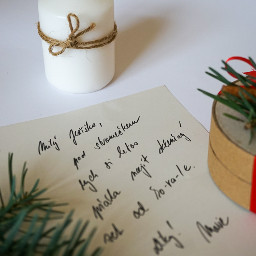 Milý Ježíšku,
pod stromečkem
bych si letos
přála najít dřevěný
set od So-va-le.
Díky! Marie